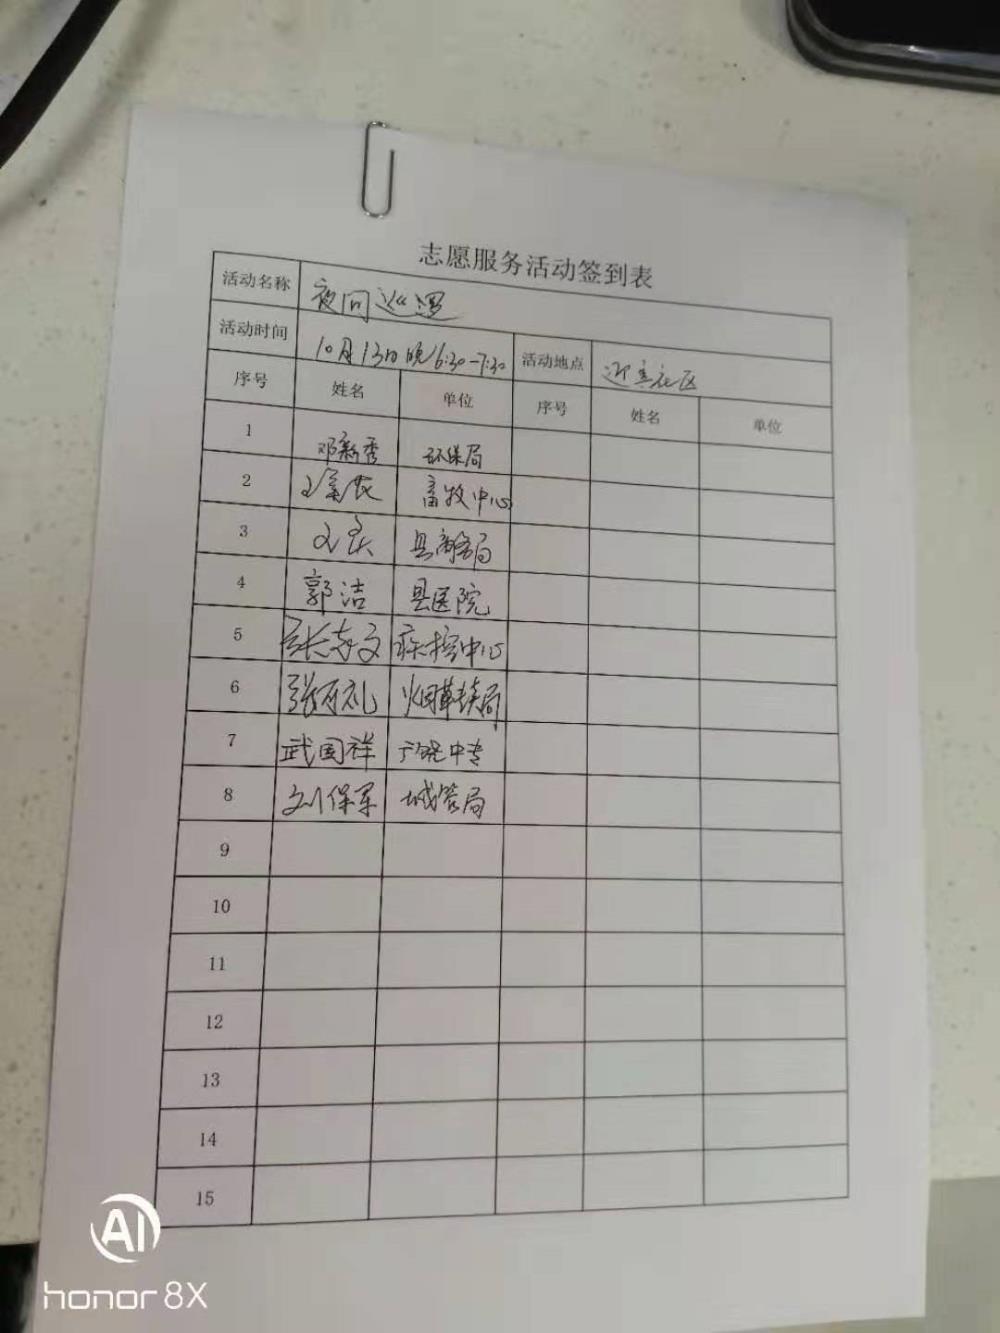 志愿服务活动签到表
活动名称 夜间巡逻
活动时间 10月13日晚6:30-7:30 活动地点 迎宾社区
序号 姓名 单位 序号 姓名 单位
1 邓新秀 环保局
2 畜牧中心
3 县商务局
4 郭洁 县医院
5 疾控中心
6 张万礼 烟草专卖局
7 武国祥 中专
8 刘保军 城管局
9
10
11
12
13
14
15
AI
honor 8X